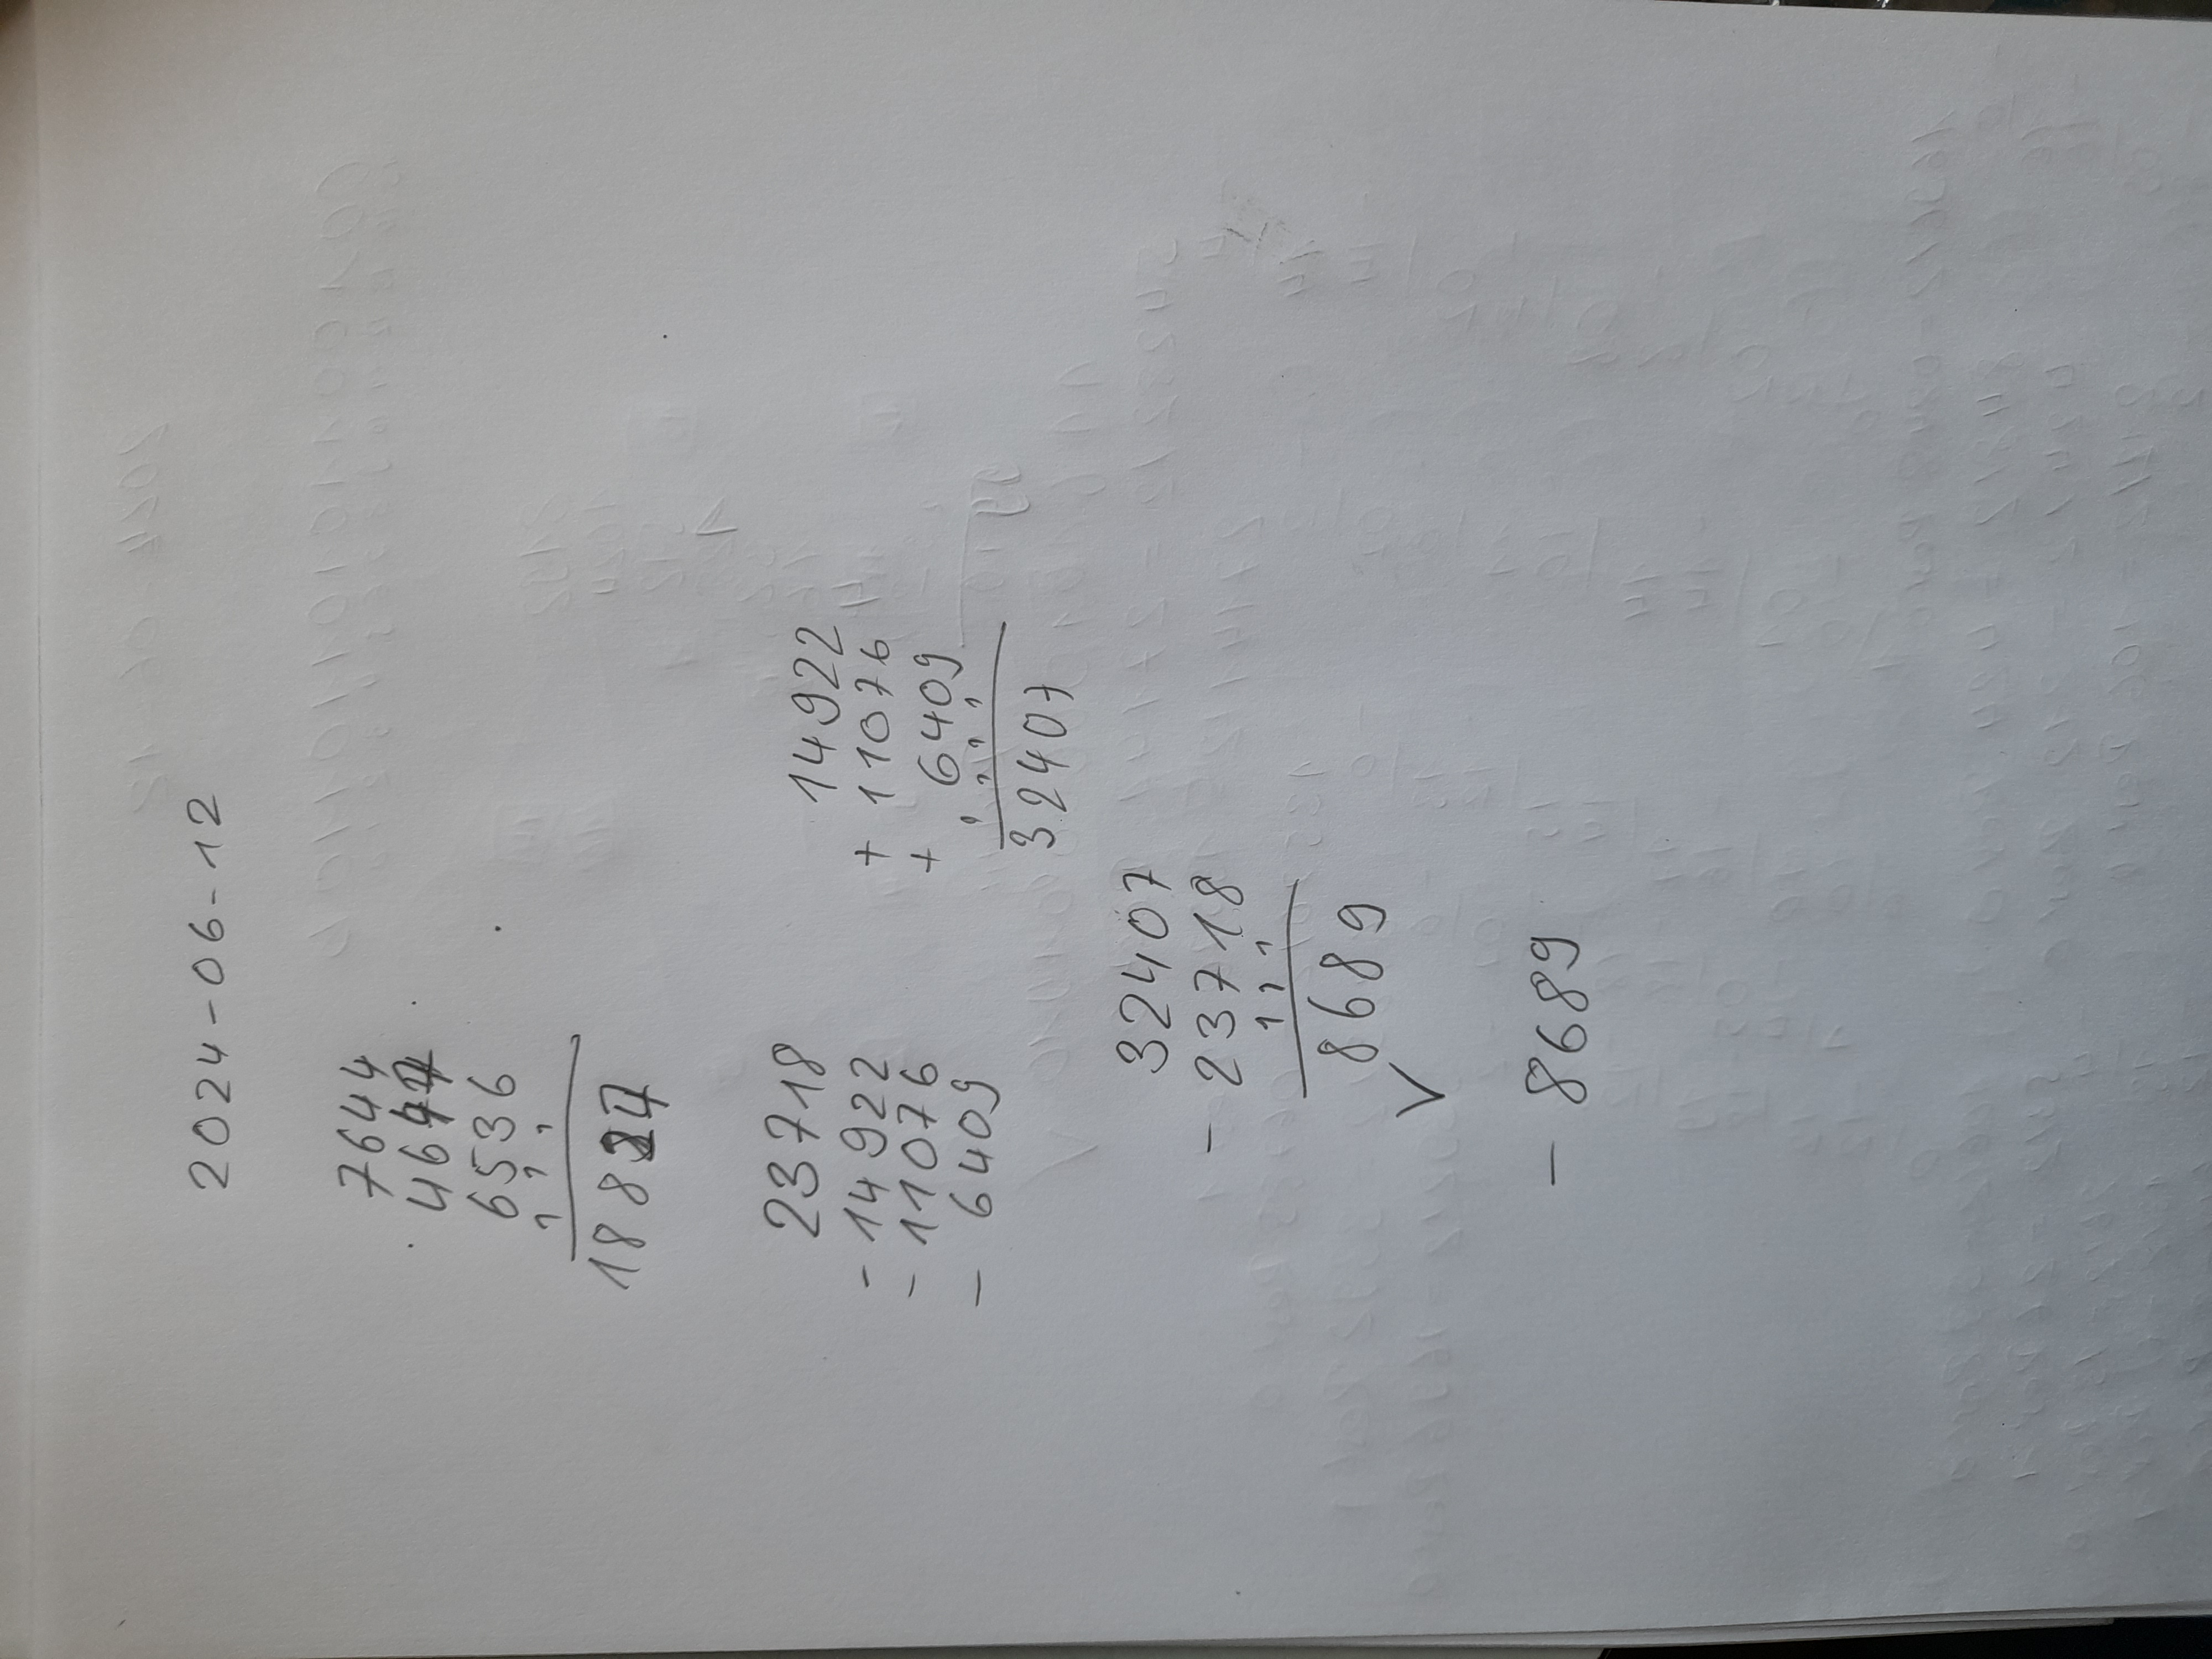 2024-06-12
7644
4647
6536
1 1 1
18827
23718
- 14922
- 11076
- 6409
14922
+ 11076
+ 6409
1 1 1 1
32407
32407
- 23718
1 1 1
8689
- 8689